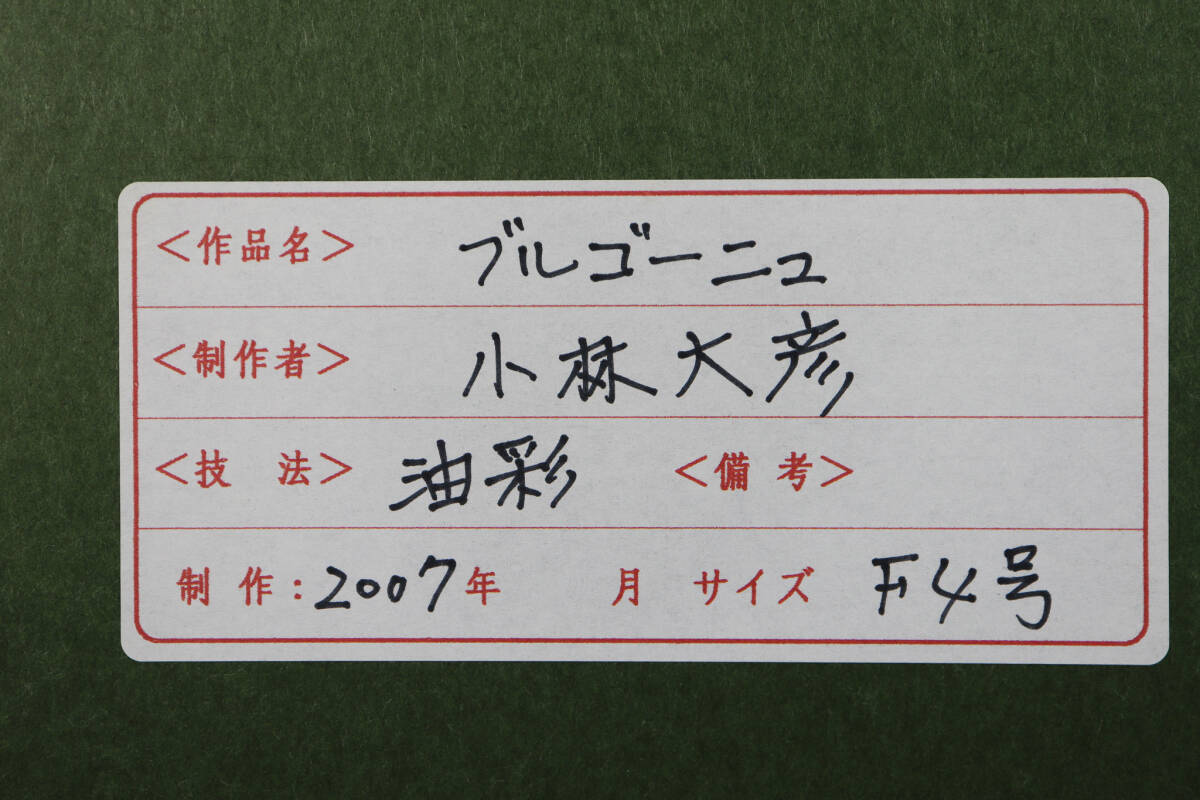 ＜作品名＞ ブルゴーニュ
＜制作者＞ 小林大彦
＜技　法＞ 油彩 ＜備考＞
制作：2007年　　月 サイズ F4号